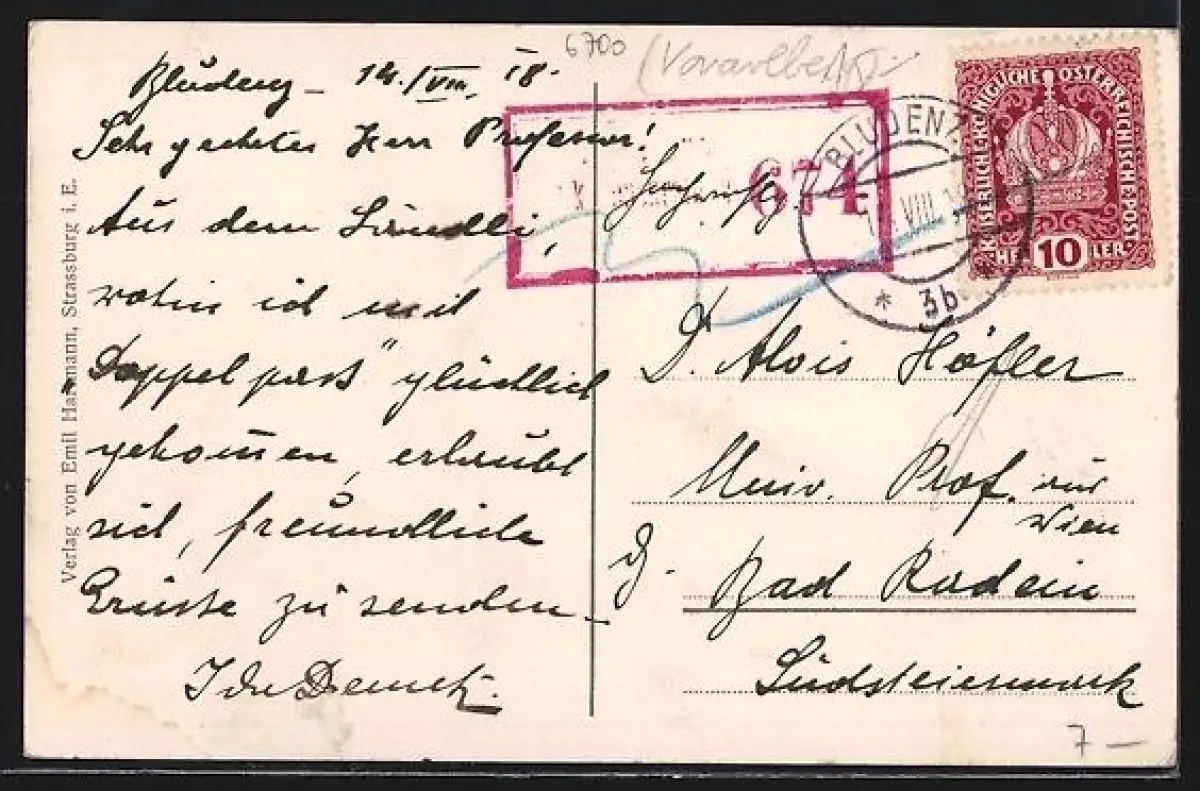 6700
(Vorarlberg)
Bludenz – 14./VIII. 18.
Sehr geehrter Herr Professor!
Aus dem Ländli,
wohin ich mit
„Doppelpass" glücklich
gekommen, erlaubt
sich, freundliche
Grüsse zu senden –
Ida Demetz.
Verlag von Emil Hartmann, Strassburg i. E.
674
BLUDENZ
VIII 18
* 3b
KAISERLICHE KÖNIGLICHE ÖSTERREICHISCHE POST
HELLER 10
Dr. Alois Höfler
Univ. Prof. aus
Wien
Bad Radein
Südsteiermark
7 –